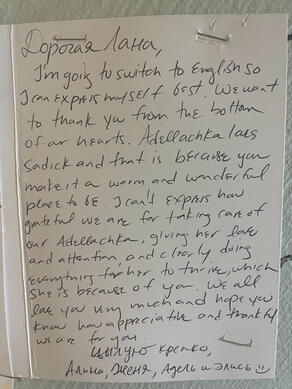 Дорогая Лана,
I'm going to switch to English so
I can express myself best. We want
to thank you from the bottom
of our hearts. Adellachka loves
Sadick and that is because you
make it a warm and wonderful
place to be. I can't express how
grateful we are for taking care of
our Adellachka, giving her love
and attention, and clearly doing
everything for her to thrive, which
she is because of you. We all
love you very much and hope you
know how appreciative and thankful
we are for you.
Цылую крепко,
Алина, Женя, Адель и Элись